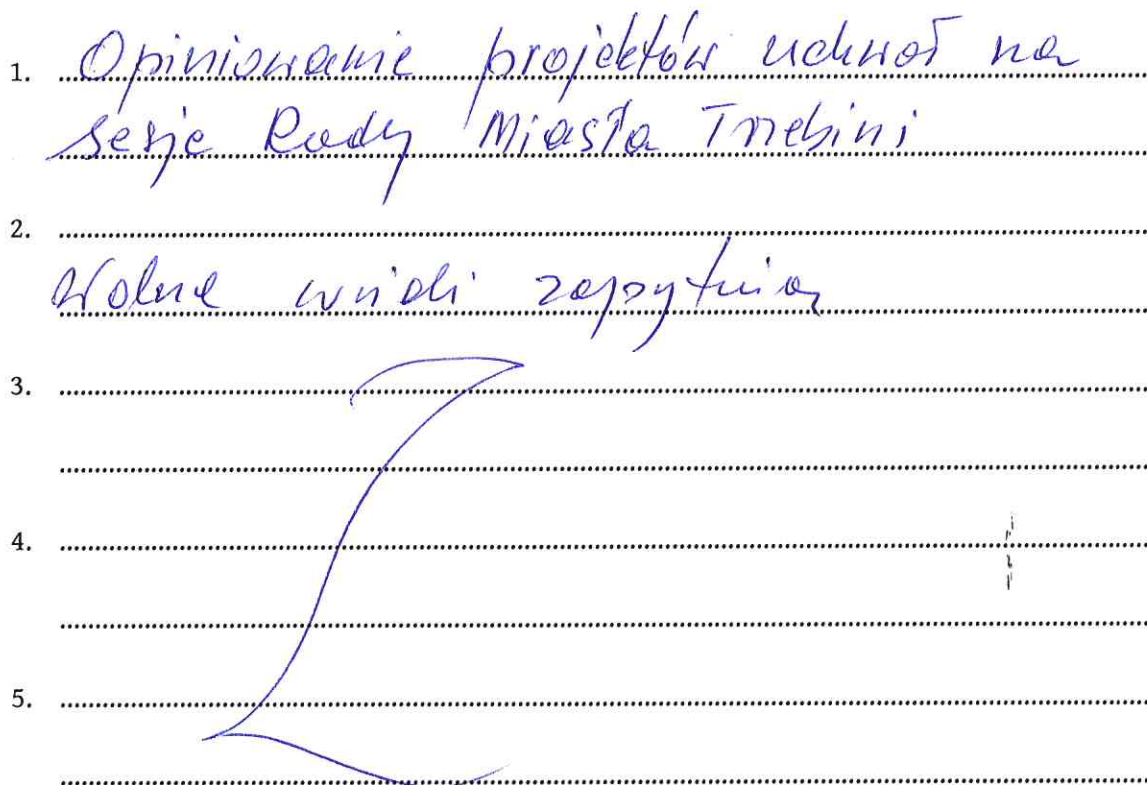 1. Opiniowanie projektów uchwał na
sesje Rady Miasta Trzebini
2.
Wolne wnioski zapytnia
3.
4.
5.